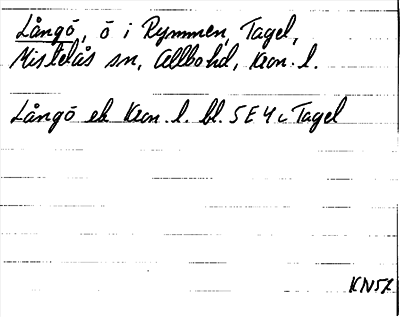 Långö, ö i Rymmen, Tagel,
Mistelås sn, Allbo hd, Kron. l.
Långö ek Kron. l. bl. 5E4c Tagel
KN57